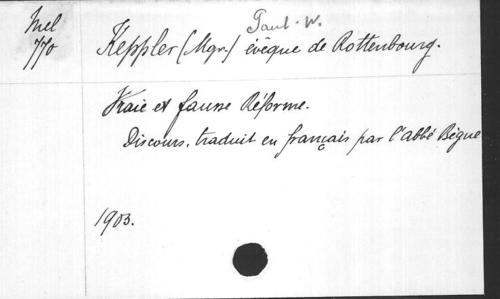 Mel
770
Paul. W.
Keppler (Mgr.) évêque de Rottenbourg.
Vraie et fausse Réforme.
Discours, traduit en français par l'abbé Bègue
1903.